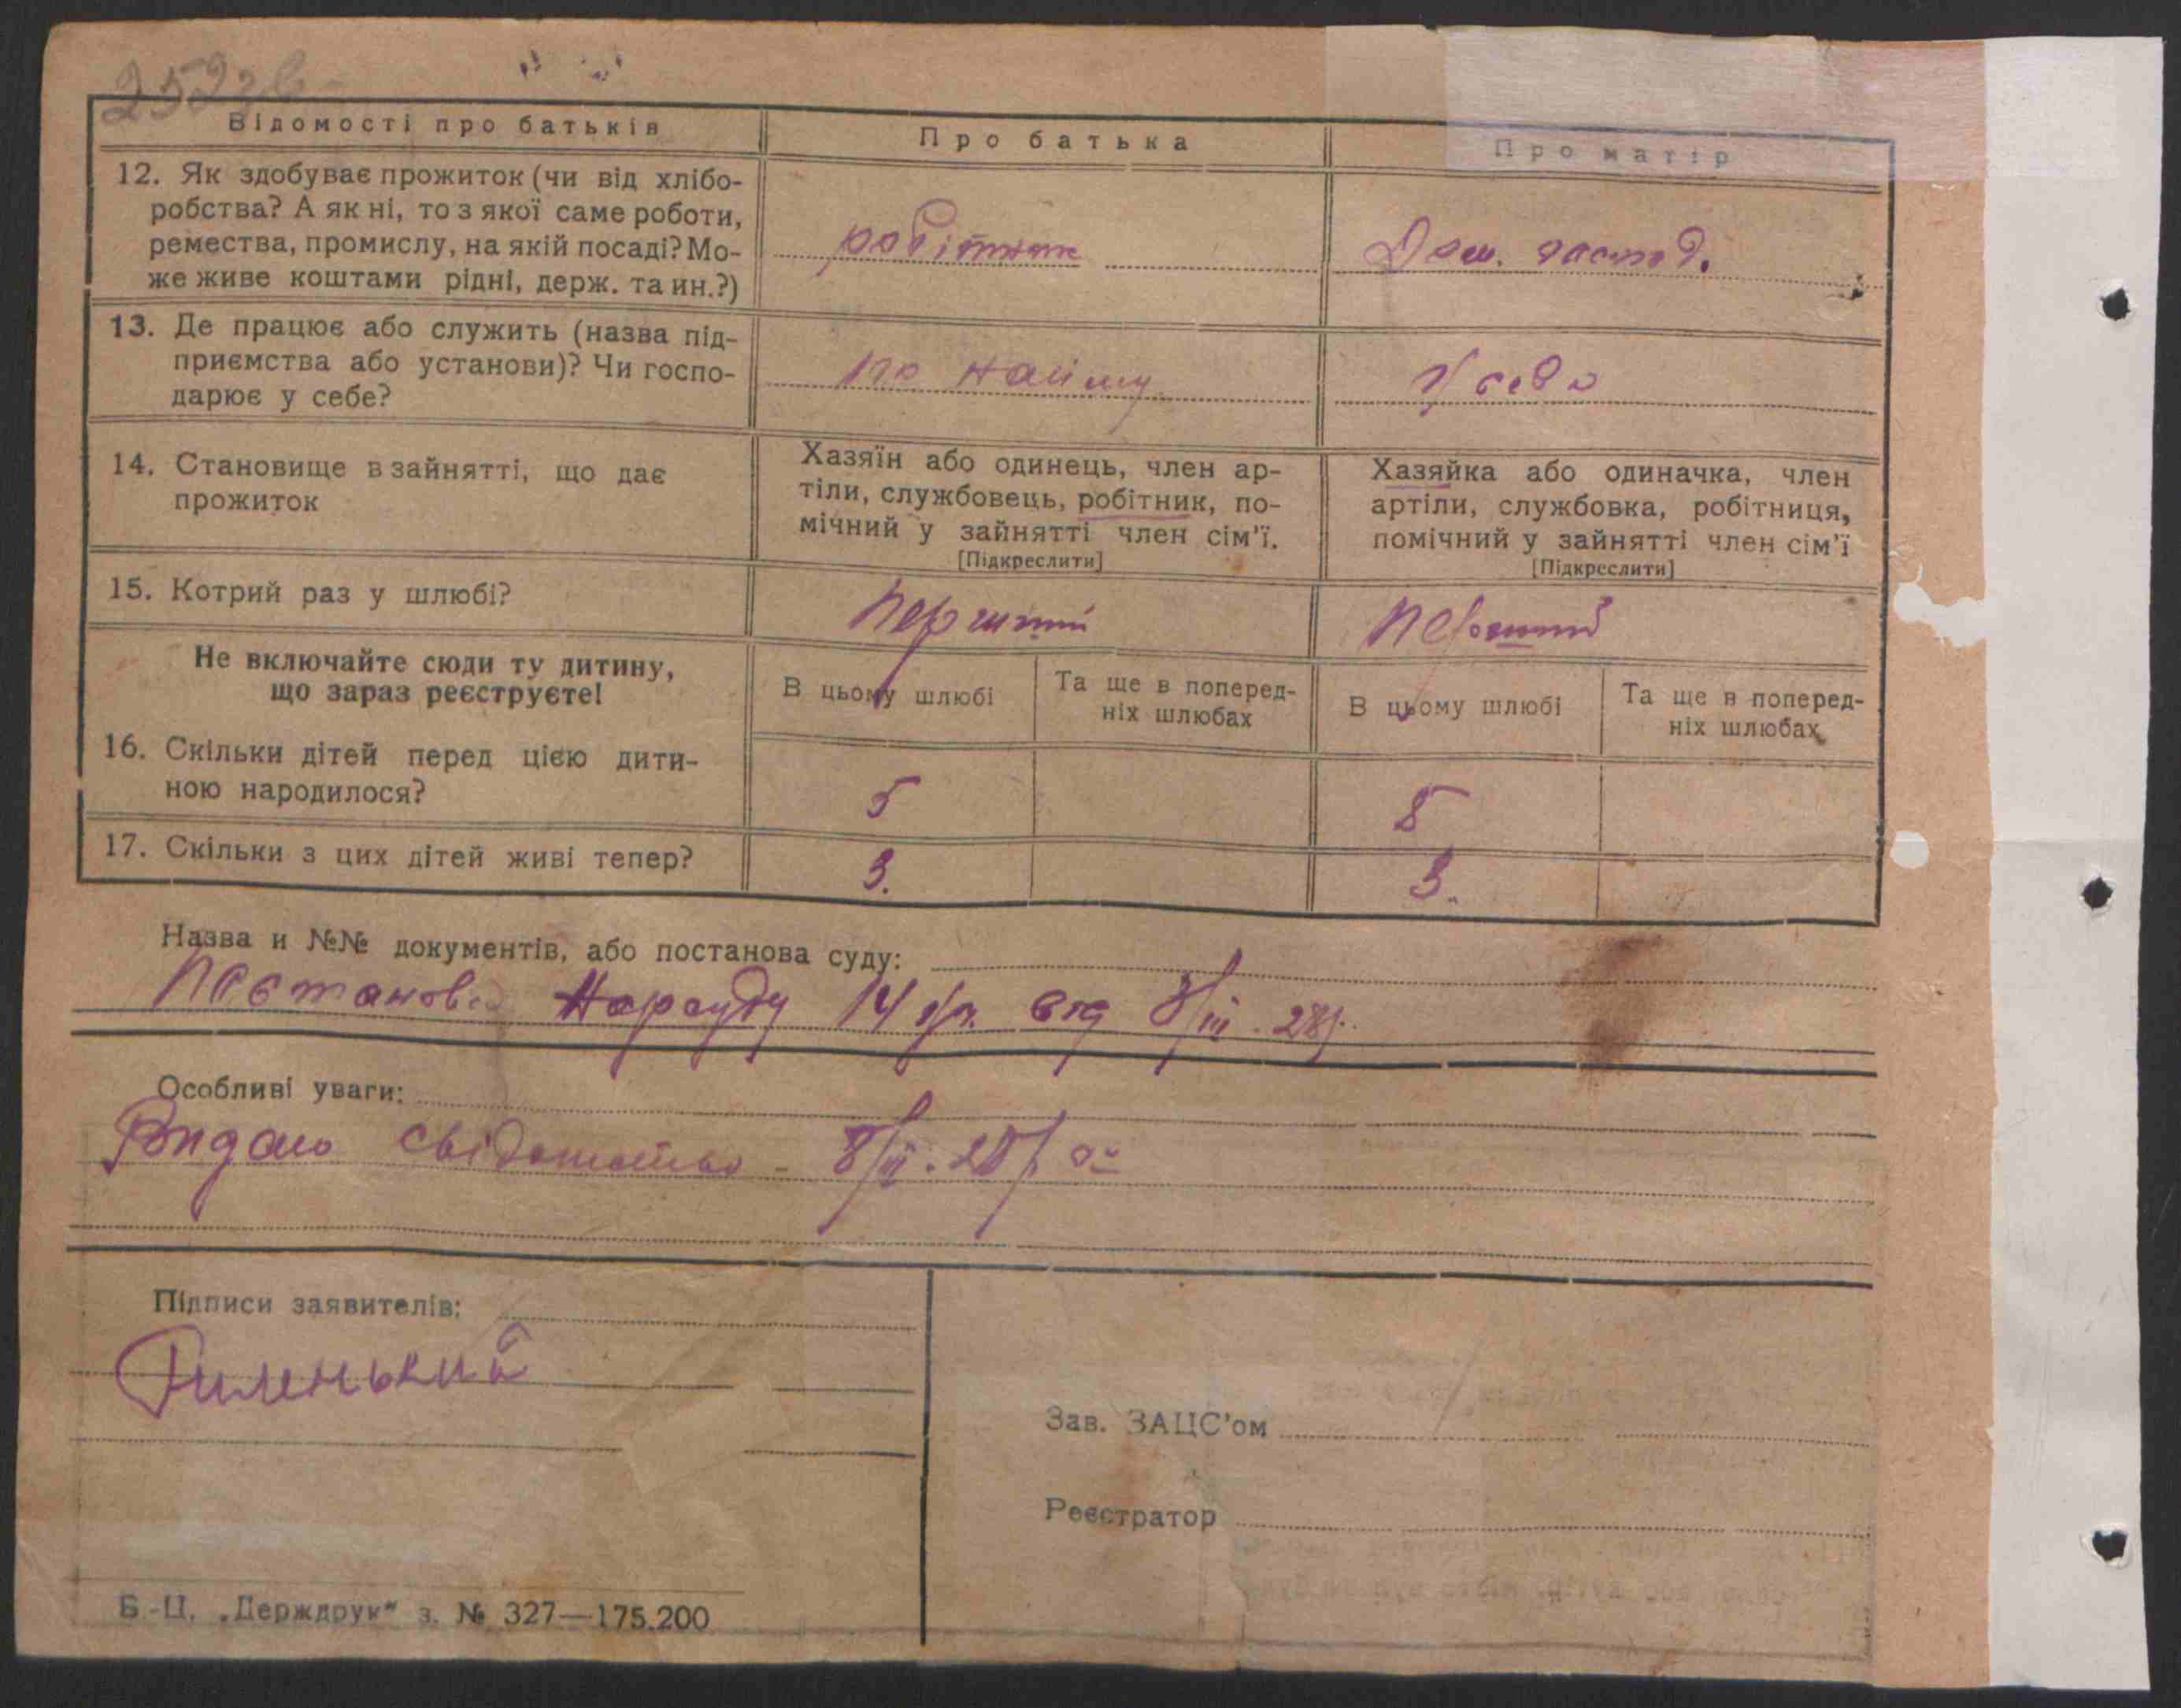 252зв
Відомості про батьків
Про батька
Про матір
12. Як здобуває прожиток (чи від хлібо-
робства? А як ні, то з якої саме роботи,
ремества, промислу, на якій посаді? Мо-
же живе коштами рідні, держ. та ин.?)
робітник
Дом. господ.
13. Де працює або служить (назва під-
приємства або установи)? Чи госпо-
дарює у себе?
по найму
У себе
14. Становище в зайнятті, що дає
прожиток
Хазяїн або одинець, член ар-
тіли, службовець, робітник, по-
мічний у зайнятті член сім'ї.
[Підкреслити]
Хазяйка або одиначка, член
артіли, службовка, робітниця,
помічний у зайнятті член сім'ї
[Підкреслити]
15. Котрий раз у шлюбі?
Перший
Перший
Не включайте сюди ту дитину,
що зараз реєструєте!
В цьому шлюбі
Та ще в поперед-
ніх шлюбах
В цьому шлюбі
Та ще в поперед-
ніх шлюбах
16. Скільки дітей перед цією дити-
ною народилося?
5
5
17. Скільки з цих дітей живі тепер?
3.
3.
Назва и №№ документів, або постанова суду:
Постанова Нарсуду 14 від 8/III. 28р.
Особливі уваги:
Видано свідоцтво - 8/III. 28р.
Підписи заявителів:
Зав. ЗАЦС'ом
Реєстратор
Б.-Ц. „Держдрук" з. № 327—175.200